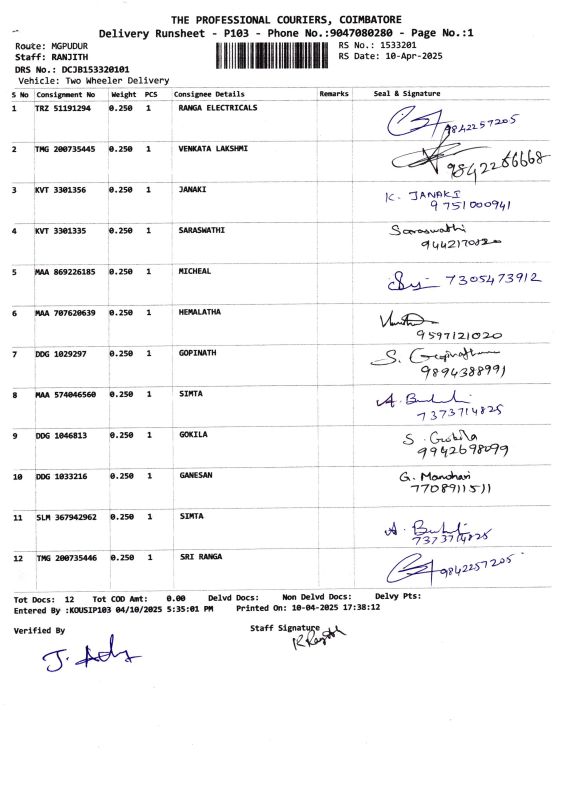 THE PROFESSIONAL COURIERS, COIMBATORE
Delivery Runsheet - P103 - Phone No.:9047080280 - Page No.:1
Route: MGPUDUR RS No.: 1533201
Staff: RANJITH RS Date: 10-Apr-2025
DRS No.: DCJB153320101
Vehicle: Two Wheeler Delivery
S No Consignment No Weight PCS Consignee Details Remarks Seal & Signature
1 TRZ 51191294 0.250 1 RANGA ELECTRICALS
9842257205
2 TMG 200735445 0.250 1 VENKATA LAKSHMI
9842266668
3 KVT 3301356 0.250 1 JANAKI K. JANAKI
9751000941
4 KVT 3301335 0.250 1 SARASWATHI Saraswathi
5 MAA 869226185 0.250 1 MICHEAL
7305473912
6 MAA 707620639 0.250 1 HEMALATHA
9597121020
7 DDG 1029297 0.250 1 GOPINATH S. Gopinath
9894388991
8 MAA 574046560 0.250 1 SIMTA A.
7373714825
9 DDG 1046813 0.250 1 GOKILA S. Gokila
9942698099
10 DDG 1033216 0.250 1 GANESAN G. Manohari
7708911511
11 SLM 367942962 0.250 1 SIMTA A.
7373714825
12 TMG 200735446 0.250 1 SRI RANGA
9842257205
Tot Docs: 12 Tot COD Amt: 0.00 Delvd Docs: Non Delvd Docs: Delvy Pts:
Entered By :KOUSIP103 04/10/2025 5:35:01 PM Printed On: 10-04-2025 17:38:12
Verified By Staff Signature